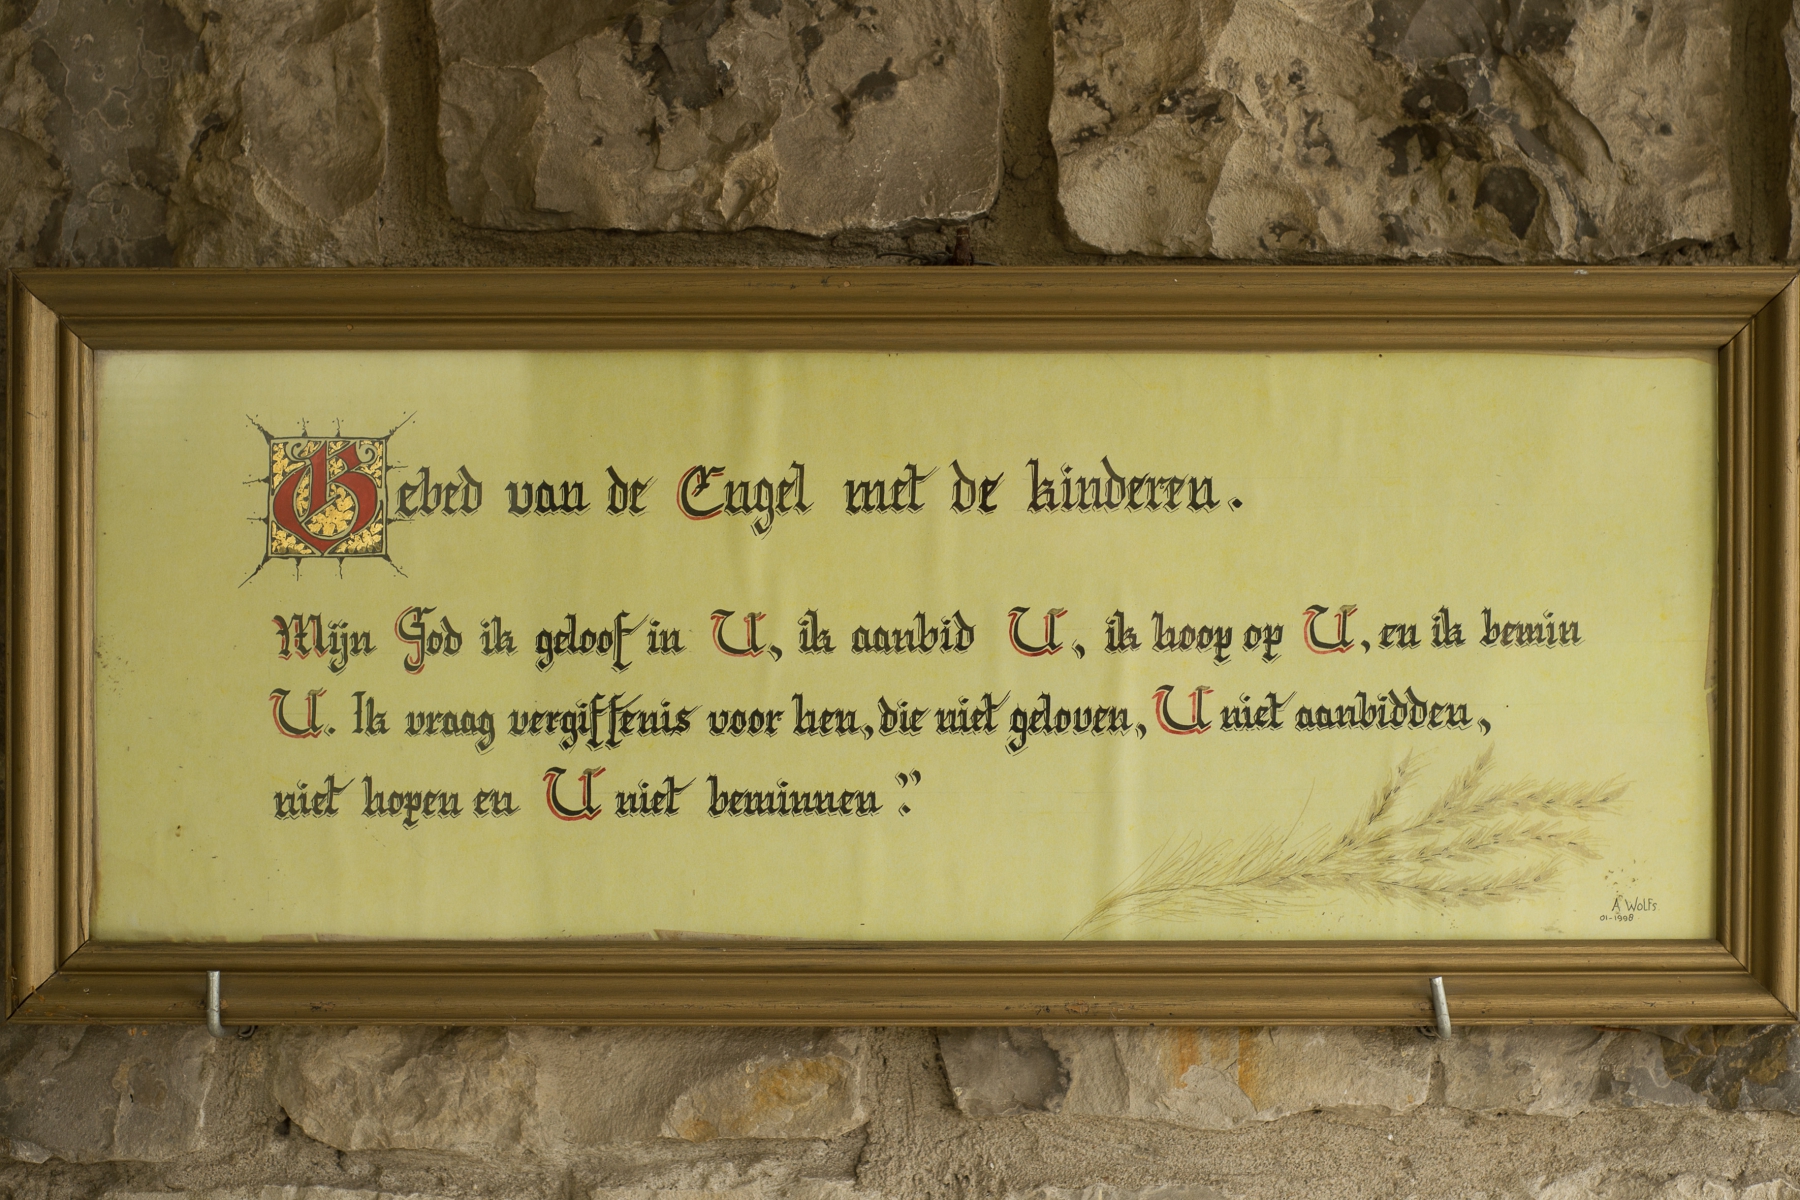 Gebed van de Engel met de kinderen.
Mijn God ik geloof in U, ik aanbid U, ik hoop op U, en ik bemin
U. Ik vraag vergiffenis voor hen, die niet geloven, U niet aanbidden,
niet hopen en U niet beminnen."
A Wolfs.
01-1998